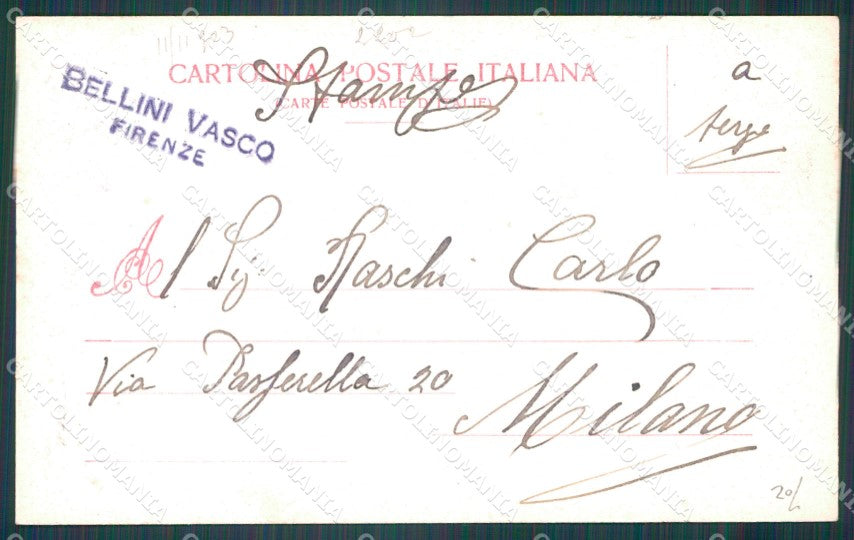 CARTOLINA POSTALE ITALIANA
(CARTE POSTALE D'ITALIE)
Stampe
a
tergo
BELLINI VASCO
FIRENZE
Al Sig Raschi Carlo
Via Passerella 20
Milano
20/
CARTOLINOMANIA